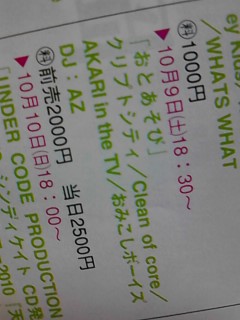 ey Kids/
/WHA'S WHAT
㊕1000円
▶10月9日(土)18:30〜
「おとあそび」
クリプトシティ/Clean of core/
AKARI in the TV/おみこしボーイズ
DJ：AZ
㊕前売2000円 当日2500円
▶10月10日(日)18:00〜
「UNDER CODE PRODUCTION
シンディケイト CD発
2010「天